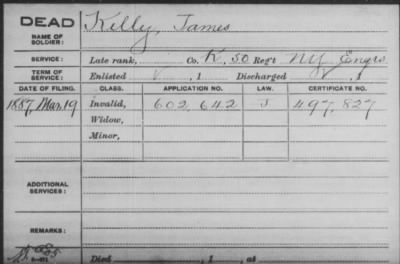 DEAD
NAME OF SOLDIER:
Kelly, James
SERVICE:
Late rank, Co. K, 50 Reg't NY Engrs
TERM OF SERVICE:
Enlisted , 1 Discharged , 1
DATE OF FILING. CLASS. APPLICATION NO. LAW. CERTIFICATE NO.
1887, Mar. 19 Invalid, 602,642 J 497,827
Widow,
Minor,
ADDITIONAL SERVICES:
REMARKS:
Died , 1 , at